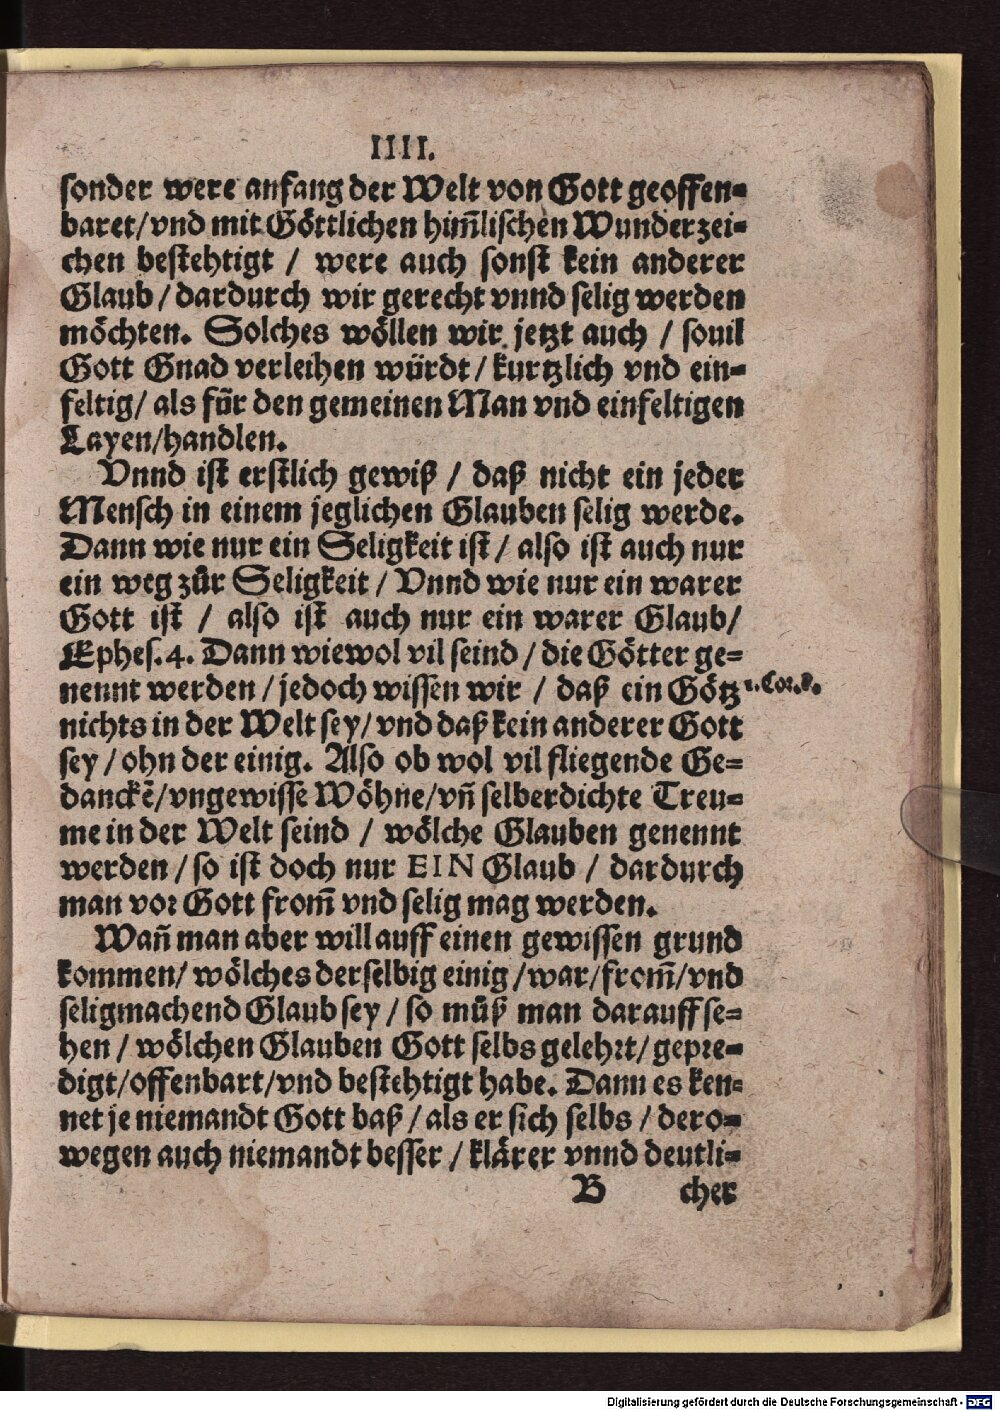 IIII.
sonder were anfang der Welt von Gott geoffen-
baret/vnd mit Göttlichen him̃lischen Wunderzei-
chen bestehtigt / were auch sonst kein anderer
Glaub/dardurch wir gerecht vnnd selig werden
möchten. Solches wöllen wir jetzt auch / souil
Gott Gnad verleihen würdt/kurtzlich vnd ein-
feltig/als für den gemeinen Man vnd einfeltigen
Layen/handlen.
Vnnd ist erstlich gewiß / daß nicht ein jeder
Mensch in einem jeglichen Glauben selig werde.
Dann wie nur ein Seligkeit ist / also ist auch nur
ein weg zůr Seligkeit / Vnnd wie nur ein warer
Gott ist / also ist auch nur ein warer Glaub/
Ephes.4. Dann wiewol vil seind/die Götter ge-
nennt werden/jedoch wissen wir / daß ein Götz
1.Cor.8.
nichts in der Welt sey/vnd daß kein anderer Gott
sey/ohn der einig. Also ob wol vil fliegende Ge-
danckẽ/vngewisse Wöhne/vñ selberdichte Treu-
me in der Welt seind / wölche Glauben genennt
werden/so ist doch nur EIN Glaub / dardurch
man vor Gott from̃ vnd selig mag werden.
Wañ man aber will auff einen gewissen grund
kommen/wölches derselbig einig/war/from̃/vnd
seligmachend Glaub sey/so můß man darauff se-
hen/wölchen Glauben Gott selbs gelehrt/gepre-
digt/offenbart/vnd bestehtigt habe. Dann es ken-
net je niemandt Gott baß/als er sich selbs/dero-
wegen auch niemandt besser/klärer vnnd deutli-
B cher
Digitalisierung gefördert durch die Deutsche Forschungsgemeinschaft - DFG